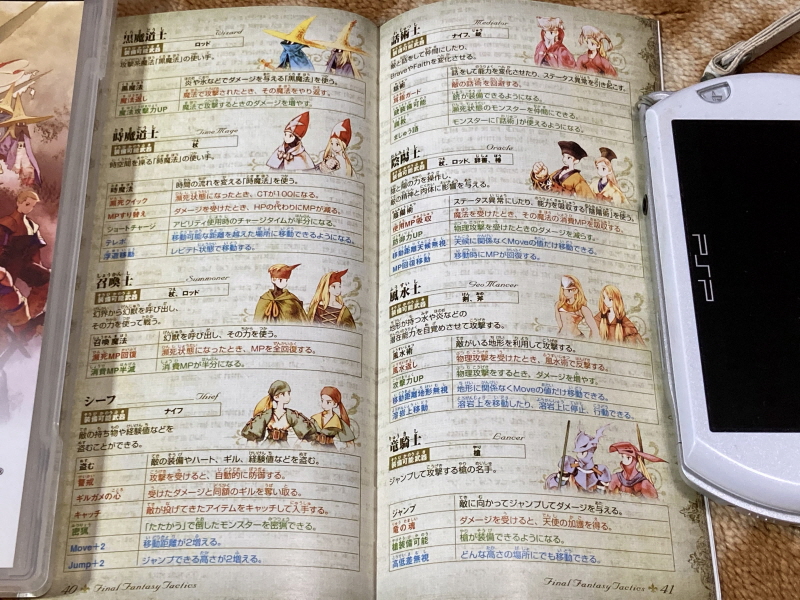 黒魔道士
Wizard
装備可能武器
ロッド
攻撃系魔法「黒魔法」の使い手。
黒魔法
炎や氷などでダメージを与える「黒魔法」を使う。
魔法返し
魔法で攻撃されたとき、その魔法をやり返す。
魔法攻撃力UP
魔法で攻撃するときのダメージを増やす。
時魔道士
Time Mage
装備可能武器
杖
時空間を操る「時魔法」の使い手。
時魔法
時間の流れを変える「時魔法」を使う。
瀕死クイック
瀕死状態になったとき、CTが100になる。
MPすり替え
ダメージを受けたとき、HPの代わりにMPが減る。
ショートチャージ
アビリティ使用時のチャージタイムが半分になる。
テレポ
移動可能な距離を越えた場所に移動できるようになる。
浮遊移動
レビテト状態で移動する。
召喚士
Summoner
装備可能武器
杖、ロッド
幻界から幻獣を呼び出し、
その力を使って戦う。
召喚魔法
幻獣を呼び出し、その力を使う。
瀕死MP回復
瀕死状態になったとき、MPを全回復する。
消費MP半減
消費MPが半分になる。
シーフ
Thief
装備可能武器
ナイフ
敵の持ち物や経験値などを
盗むことができる。
盗む
敵の装備やハート、ギル、経験値などを盗む。
警戒
攻撃を受けると、自動的に防御する。
ギルガメの心
受けたダメージと同額のギルを奪い取る。
キャッチ
敵が投げてきたアイテムをキャッチして入手する。
密猟
「たたかう」で倒したモンスターを密猟できる。
Move+2
移動距離が2増える。
Jump+2
ジャンプできる高さが2増える。
40 Final Fantasy Tactics
話術士
Mediator
装備可能武器
ナイフ、銃
敵と話をして仲間にしたり、
BraveやFaithを変化させる。
話術
話をして能力を変化させたり、ステータス異常を引き起こす。
敵の話術を回避する。
銃装備可能
銃が装備できるようになる。
瀕死状態のモンスターを仲間にできる。
まじゅう語
モンスターに「話術」が使えるようになる。
陰陽士
Oracle
装備可能武器
杖、ロッド、辞書、棒
陽と陰の力を操作し、
敵の精神と肉体に影響を与える。
陰陽術
ステータス異常にしたり、能力を吸収する「陰陽術」を使う。
使用MP吸収
魔法を受けたとき、その魔法の消費MPを吸収する。
防御力UP
物理攻撃を受けたときのダメージを減らす。
移動距離天候無視
天候に関係なくMoveの値だけ移動できる。
MP回復移動
移動時にMPが回復する。
風水士
GeoMancer
装備可能武器
剣、斧
地形が持つ水や炎などの
潜在能力を目覚めさせて攻撃する。
風水術
敵がいる地形を利用して攻撃する。
風水返し
物理攻撃を受けたとき、風水術で反撃する。
攻撃力UP
物理攻撃をするとき、ダメージを増やす。
移動距離地形無視
地形に関係なくMoveの値だけ移動できる。
溶岩上移動
溶岩上を移動したり、溶岩上に停止、行動できる。
竜騎士
Lancer
装備可能武器
槍
ジャンプして攻撃する槍の名手。
ジャンプ
敵に向かってジャンプしてダメージを与える。
竜の魂
ダメージを受けると、天使の加護を得る。
槍装備可能
槍が装備できるようになる。
高低差無視
どんな高さの場所にでも移動できる。
Final Fantasy Tactics 41
PSP